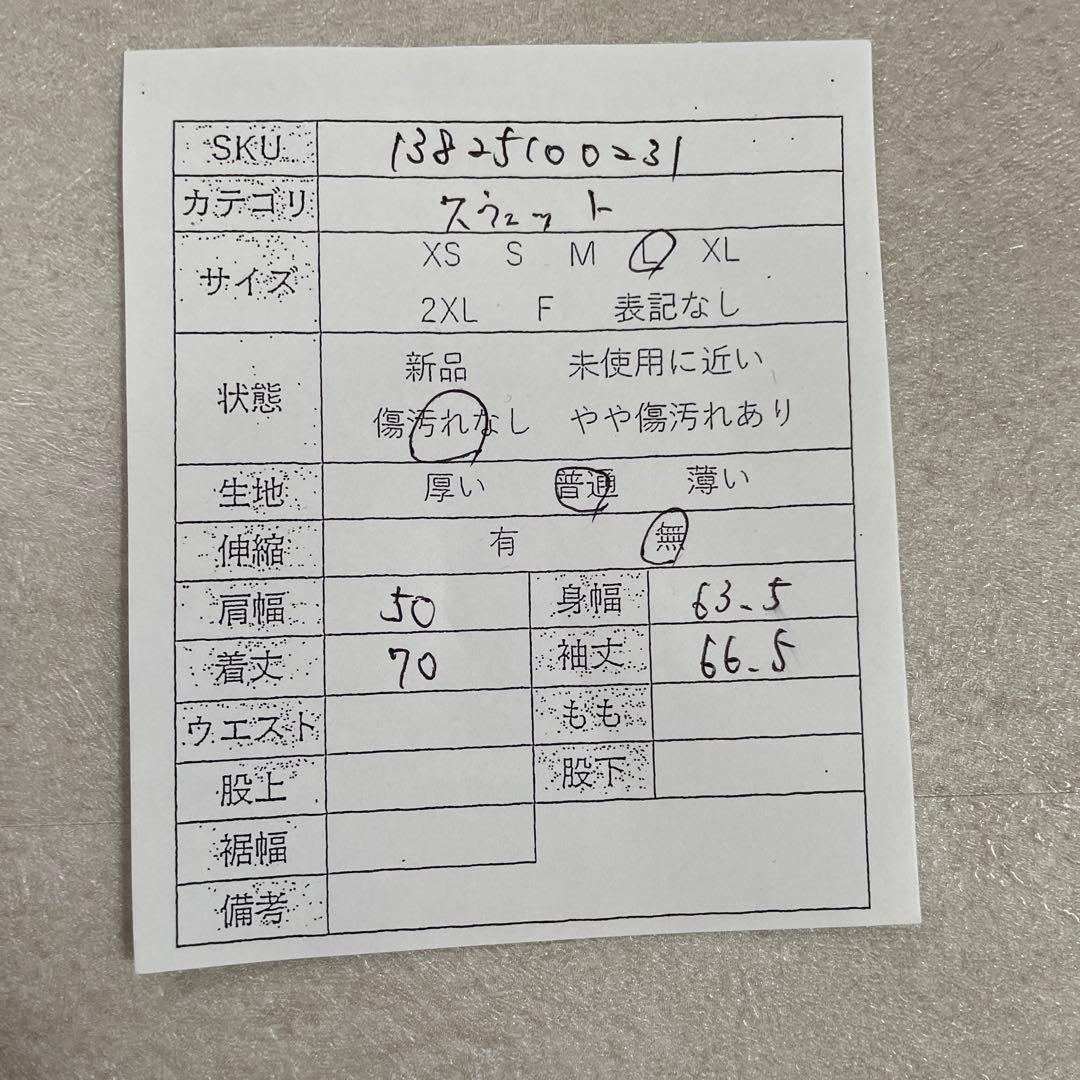 SKU 13825100231
カテゴリ スウェット
サイズ XS S M L XL
2XL F 表記なし
状態 新品 未使用に近い
傷汚れなし やや傷汚れあり
生地 厚い 普通 薄い
伸縮 有 無
肩幅 50 身幅 63.5
着丈 70 袖丈 66.5
ウエスト もも
股上 股下
裾幅
備考